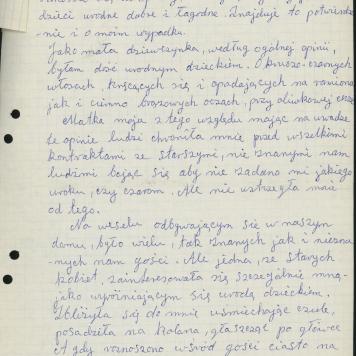 dzieci urodne dobre i łagodne. Znajduje to potwierdze
- nie i o moim wypadku.
Jako mała dziewczynka, według ogólnej opinii,
byłam dość urodnym dzieckiem. O kruczo-czarnych
włosach kręcących się i opadających na ramiona
jak i ciemno brązowych oczach, przy oliwkowej cerze
Matka moja z tego względu mając na uwadze
te opinie ludzi chroniła mnie przed wszelkimi
kontraktami ze starszymi, nie znanymi nam
ludźmi bojąc się aby nie zadano mi jakiego
uroku, czy czarów. Ale nie ustrzegła mnie
od tego.
Na weselu odbywającym się w naszym
domu, było wielu, tak znanych jak i niezna
- nych nam gości. Ale jedna, ze starych
kobiet, zainteresowała się szczególnie mną-
jako wyróżniającym się urodą dzieckiem.
Zbliżyła się do mnie uśmiechając czule,
posadziła na kolana, głaszcząc po główce
A gdy roznoszono wśród gości ciasto na